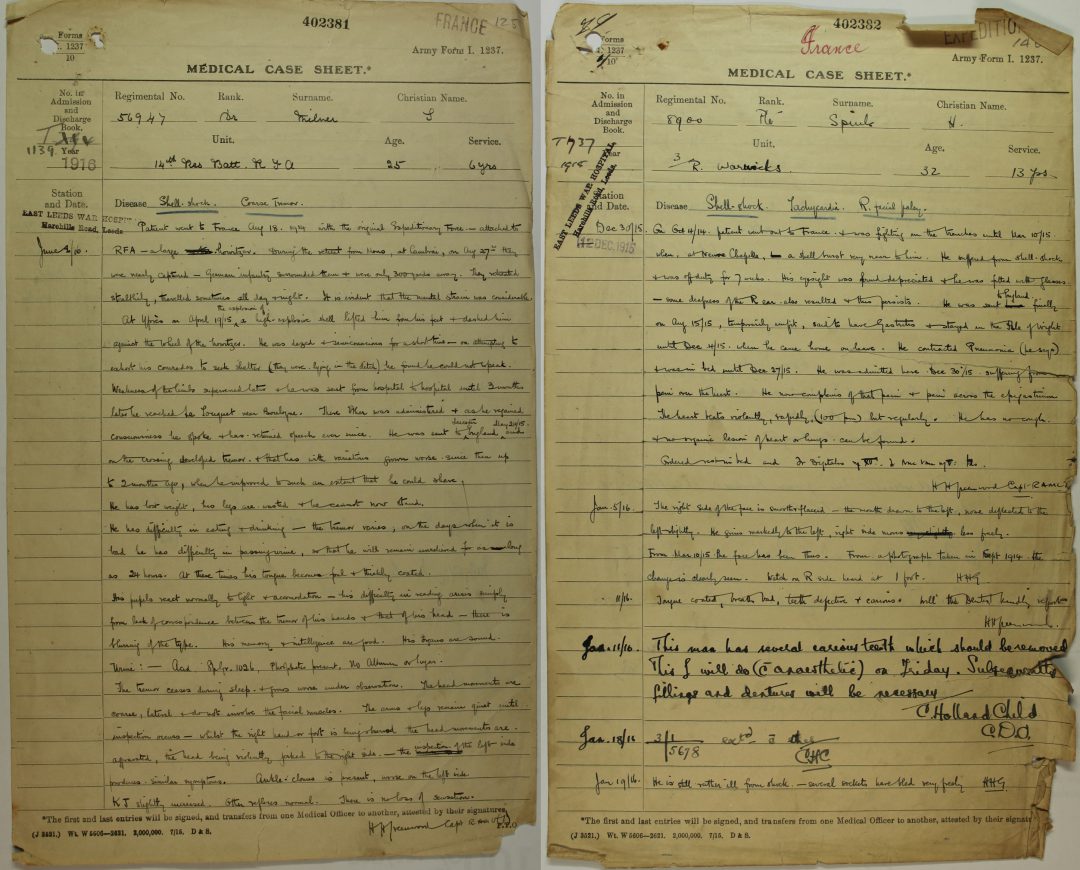 402381
FRANCE
125
Forms
I. 1237
10
Army Form I. 1237.
MEDICAL CASE SHEET.*
No. in
Admission
and
Discharge
Book.
1139 Year
1916
Regimental No. Rank. Surname. Christian Name.
56947 Milner S
Unit. Age. Service.
14th Res Batt. R F A 25 6 yrs
Station
and Date.
EAST LEEDS WAR HOSPITAL
Harehills Road, Leeds
Disease Shell-shock. Coarse Tremor.
June 2/16.
Patient went to France Aug 18. 1914 with the original Expeditionary Force – attached to
RFA – a large howitzer. During the retreat from Mons, at Cambrai, on Aug 27th they
were nearly captured – German infantry surrounded them & were only 300 yards away. They retreated
stealthily, travelled sometimes all day & night. It is evident that the mental strain was considerable.
At Ypres on April 19/15, the explosion of a high-explosive shell lifted him from his feet & dashed him
against the wheel of the howitzer. He was dazed & semiconscious for a short time – on attempting to
exhort his comrades to seek shelter (they were lying in the ditch) he found he could not speak.
Weakness of the limbs supervened later & he was sent from hospital to hospital until 3 months
later he reached Le Touquet near Boulogne. There Ether was administered & as he regained
consciousness he spoke & has retained speech ever since. He was sent to England, and
on the crossing developed tremor. & that has with variations grown worse since then up
to 2 months ago, when he improved to such an extent that he could shave.
He has lost weight, his legs are wasted & he cannot now stand.
He has difficulty in eating & drinking – the tremor varies, on the days when it is
bad he has difficulty in passing urine, so that he will remain unrelieved for as long
as 24 hours. At these times his tongue becomes foul & thickly coated.
His pupils react normally to light & accomodation – his difficulty in reading arises simply
from lack of correspondence between the tremor of his hands & that of his head – there is
blurring of the type. His memory & intelligence are good. His organs are sound.
Urine: – Acid. Sp.gr. 1026, Phosphates present, No Albumen or sugar.
The tremor ceases during sleep & grows worse under observation. The head movements are
coarse, lateral & do not involve the facial muscles. The arms & legs remain quiet until
inspection occurs – whilst the right hand or foot is being observed the head movements are
aggravated, the head being violently jerked to the right side – the inspection of the left side
produces similar symptoms. Ankle-clonus is present, worse on the left side.
KJ slightly increased. Other reflexes normal. There is no loss of sensation.
*The first and last entries will be signed, and transfers from one Medical Officer to another, attested by their signatures
(J 3521.) Wt. W 5606—2621. 2,000,000. 7/15. D & S.
H H Greenwood Capt
P.T.O
402382
France
EXPEDITION
Forms
I. 1237
10
Army Form I. 1237.
MEDICAL CASE SHEET.*
No. in
Admission
and
Discharge
Book.
T 737
Year
1915
Regimental No. Rank. Surname. Christian Name.
8900 Pte H.
Unit. Age. Service.
3 R. Warwicks 32 13 yrs
Station
and Date.
EAST LEEDS WAR HOSPITAL,
Harehills Road, Leeds.
DEC. 1915
Disease Shell-shock. Tachycardia. R. facial palsy.
Dec 30/15
On Oct 4/14. patient went out to France & was fighting in the trenches until Mar 10/15.
when, at Neuve Chapelle, a shell burst very near to him. He suffered from shell-shock
& was off duty for 7 weeks. His eyesight was found depreciated & he was fitted with glasses
– some deafness of the R ear also resulted & this persists. He was sent to England finally
on Aug 15/15, temporarily unfit, said to have Gastritis & stayed in the Isle of Wight
until Dec 4/15. when he came home on leave. He contracted Pneumonia (he says)
& was in bed until Dec. 27/15. He was admitted here Dec 30/15. suffering from
pain over the heart. He now complains of that pain & pain across the epigastrium
The heart beats violently, rapidly, (100 pm) but regularly. He has no cough.
& no organic lesion of heart or lungs can be found.
Ordered rest in bed and
H H Greenwood Capt RAMC
Jan 5/16
The right side of the face is smooth & flaccid – the mouth drawn to the left, nose deflected to the
left slightly. He grins markedly to the left, right side moves less freely.
From Mar 10/15 the face has been thus. From a photograph taken in Sept 1914 the
change is clearly seen. Watch on R side heard at 1 foot. HHG
" 11/16.
Tongue coated, breath bad, teeth defective & carious. Will the Dentist kindly report
H H Greenwood.
Jan. 11/16.
This man has several carious teeth which should be removed
This I will do (c̄ anaesthetic) on Friday. Subsequently
fillings and dentures will be necessary
C. Holland Child
C.D.O.
Jan. 18/16
3/1
5678
extd
CHC
Jan 19/16.
He is still rather ill from shock. – several sockets have bled very freely HHG
*The first and last entries will be signed, and transfers from one Medical Officer to another, attested by their signatur
(J 3521.) Wt. W 5606—2621. 2,000,000. 7/15. D & S.